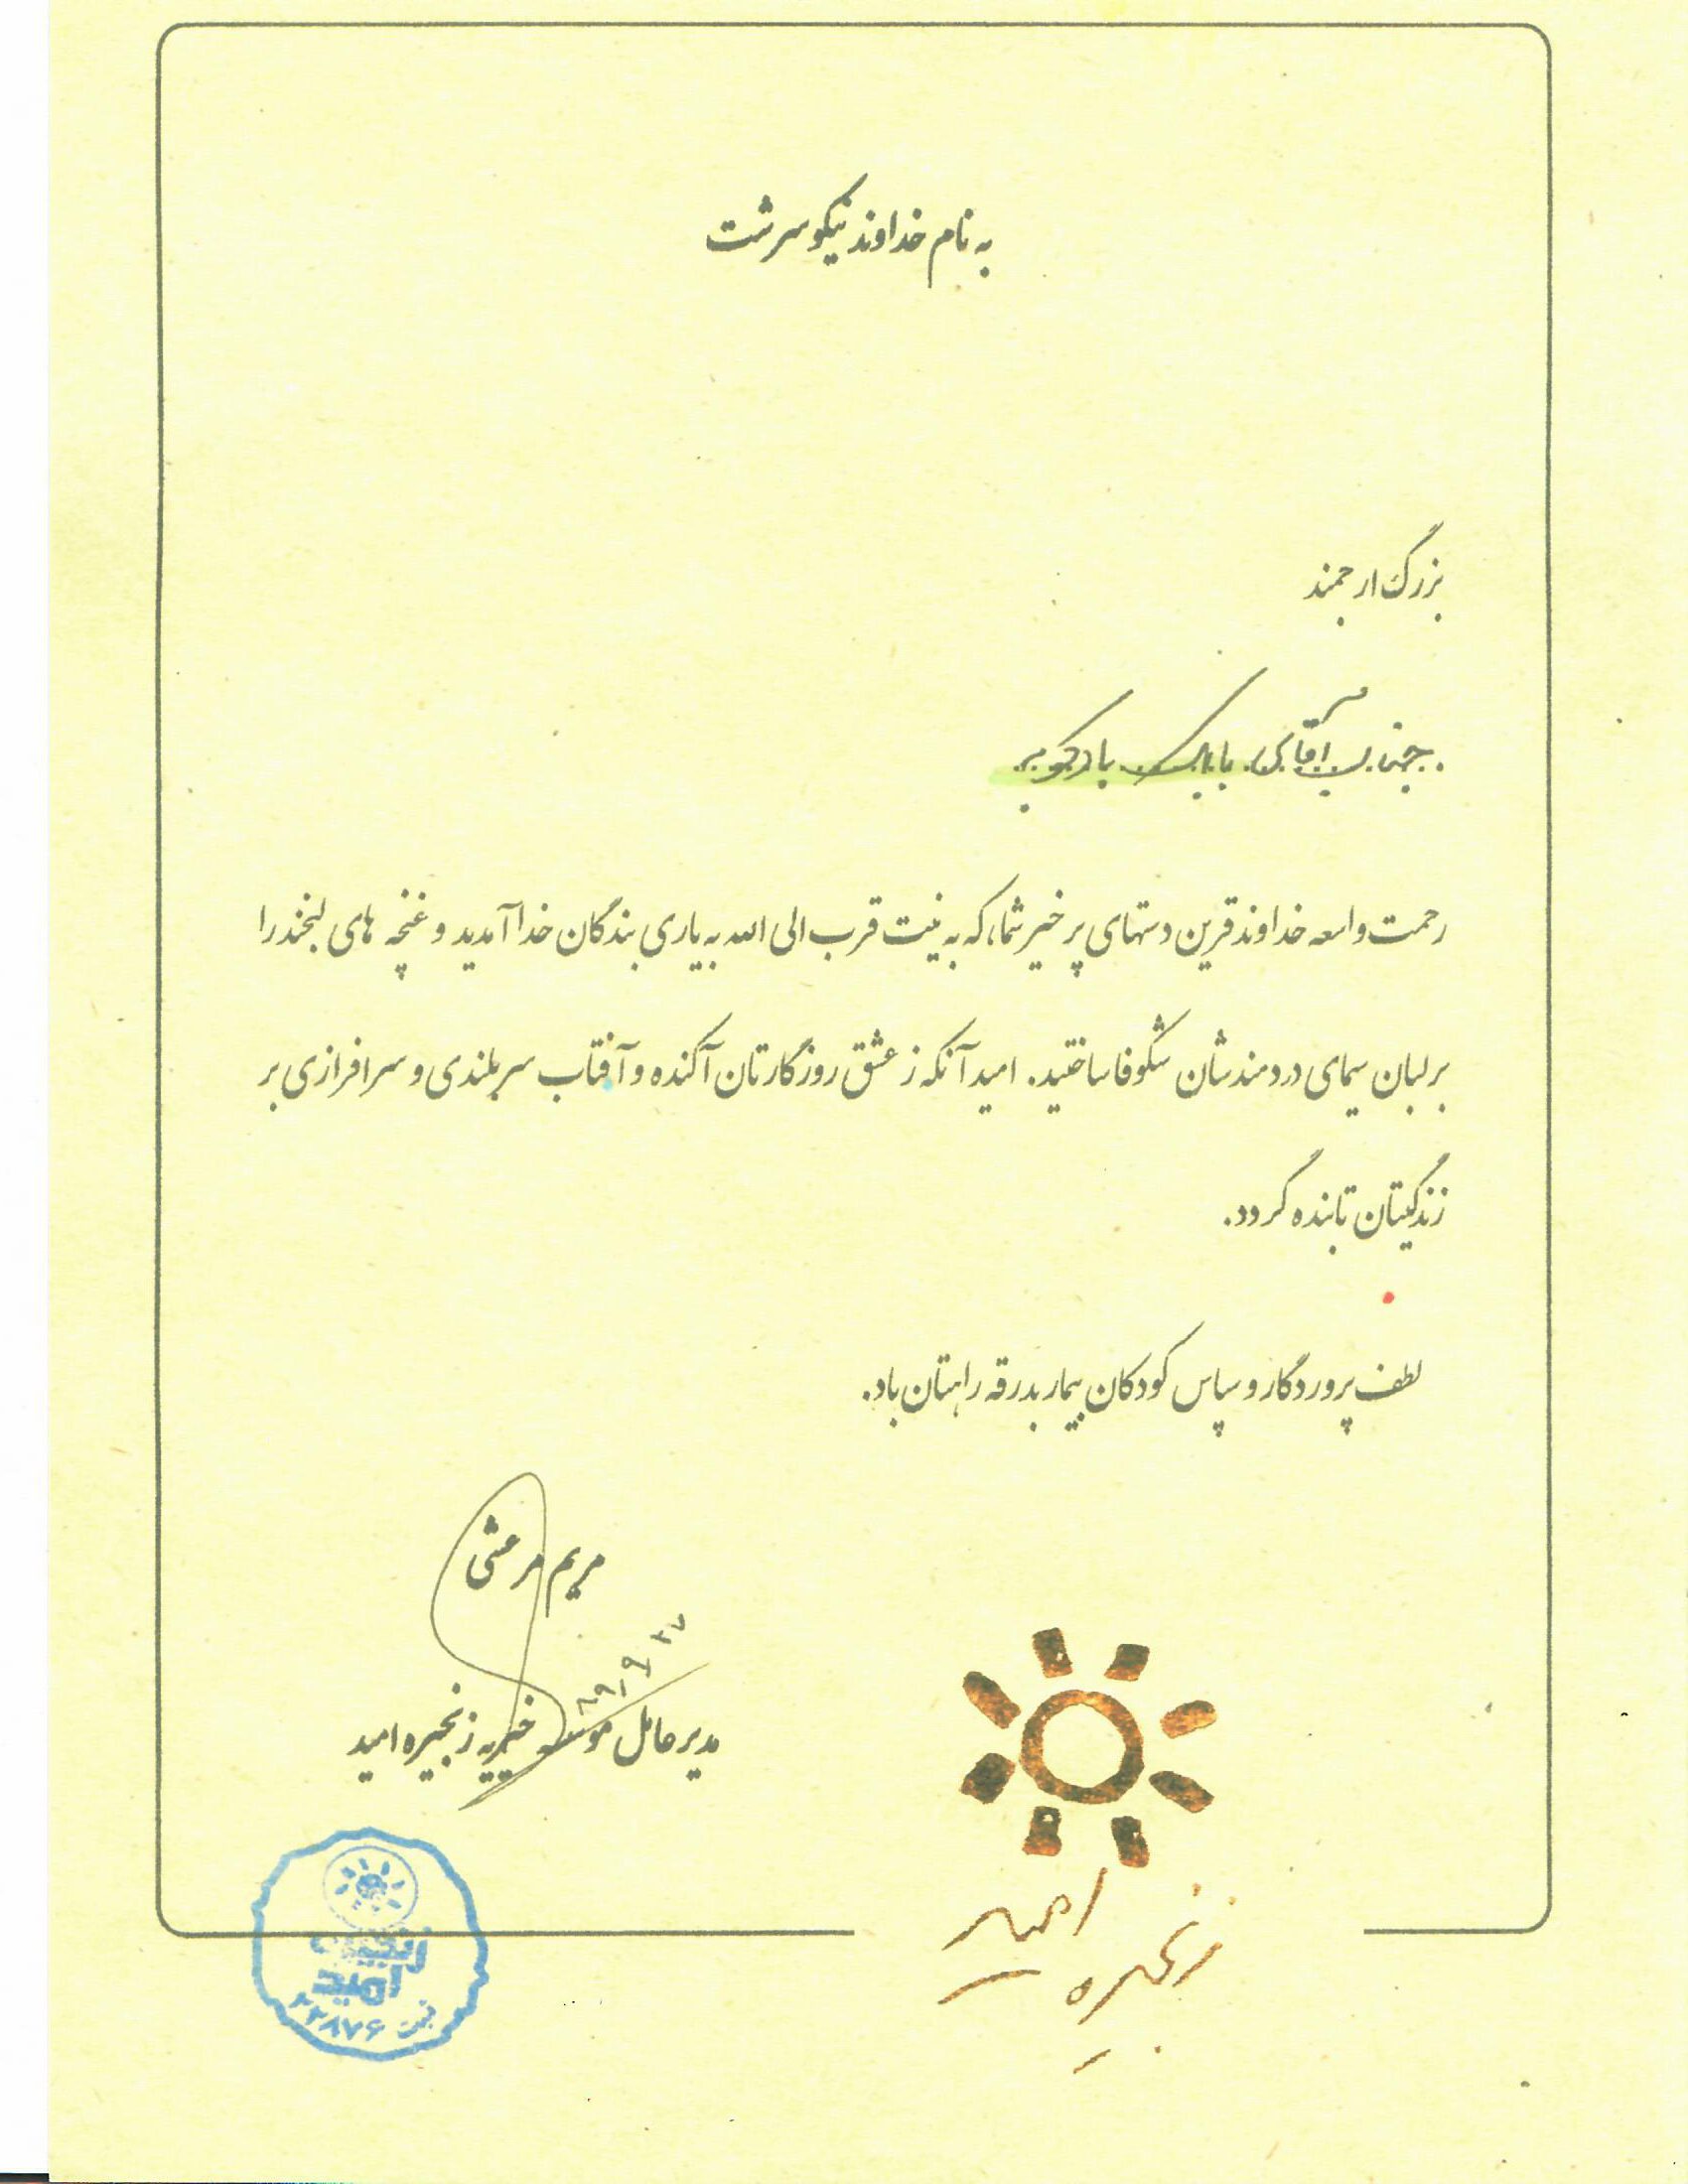 به نام خداوند نیکو سرشت
بزرگ ارجمند
جناب آقای بابک بادکوبه
رحمت واسعه خداوند قرین دستهای پر خیر شما، که به نیت قرب الی الله به یاری بندگان خدا آمدید و غنچه های لبخند را
بر لبان سیمای دردمندشان شکوفا ساختید. امید آنکه ز عشق روزگارتان آکنده و آفتاب سربلندی و سرافرازی بر
زندگیتان تابنده گردد.
لطف پروردگار و سپاس کودکان بیمار بدرقه راهتان باد.
مریم مرعشی
۸۹/۹/۲۷
مدیر عامل موسسه خیریه زنجیره امید
زنجیره امید
زنجیره
امید
ثبت ۲۲۸۷۶